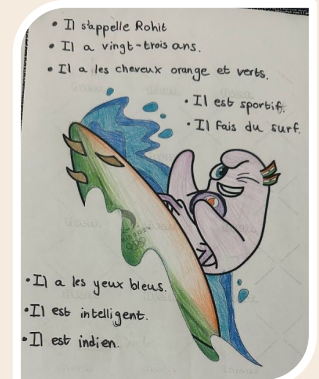 • Il s'appelle Rohit
• Il a vingt-trois ans.
• Il a les cheveux orange et verts.
• Il est sportif.
• Il fais du surf.
• Il a les yeux bleus.
• Il est intelligent.
• Il est indien.